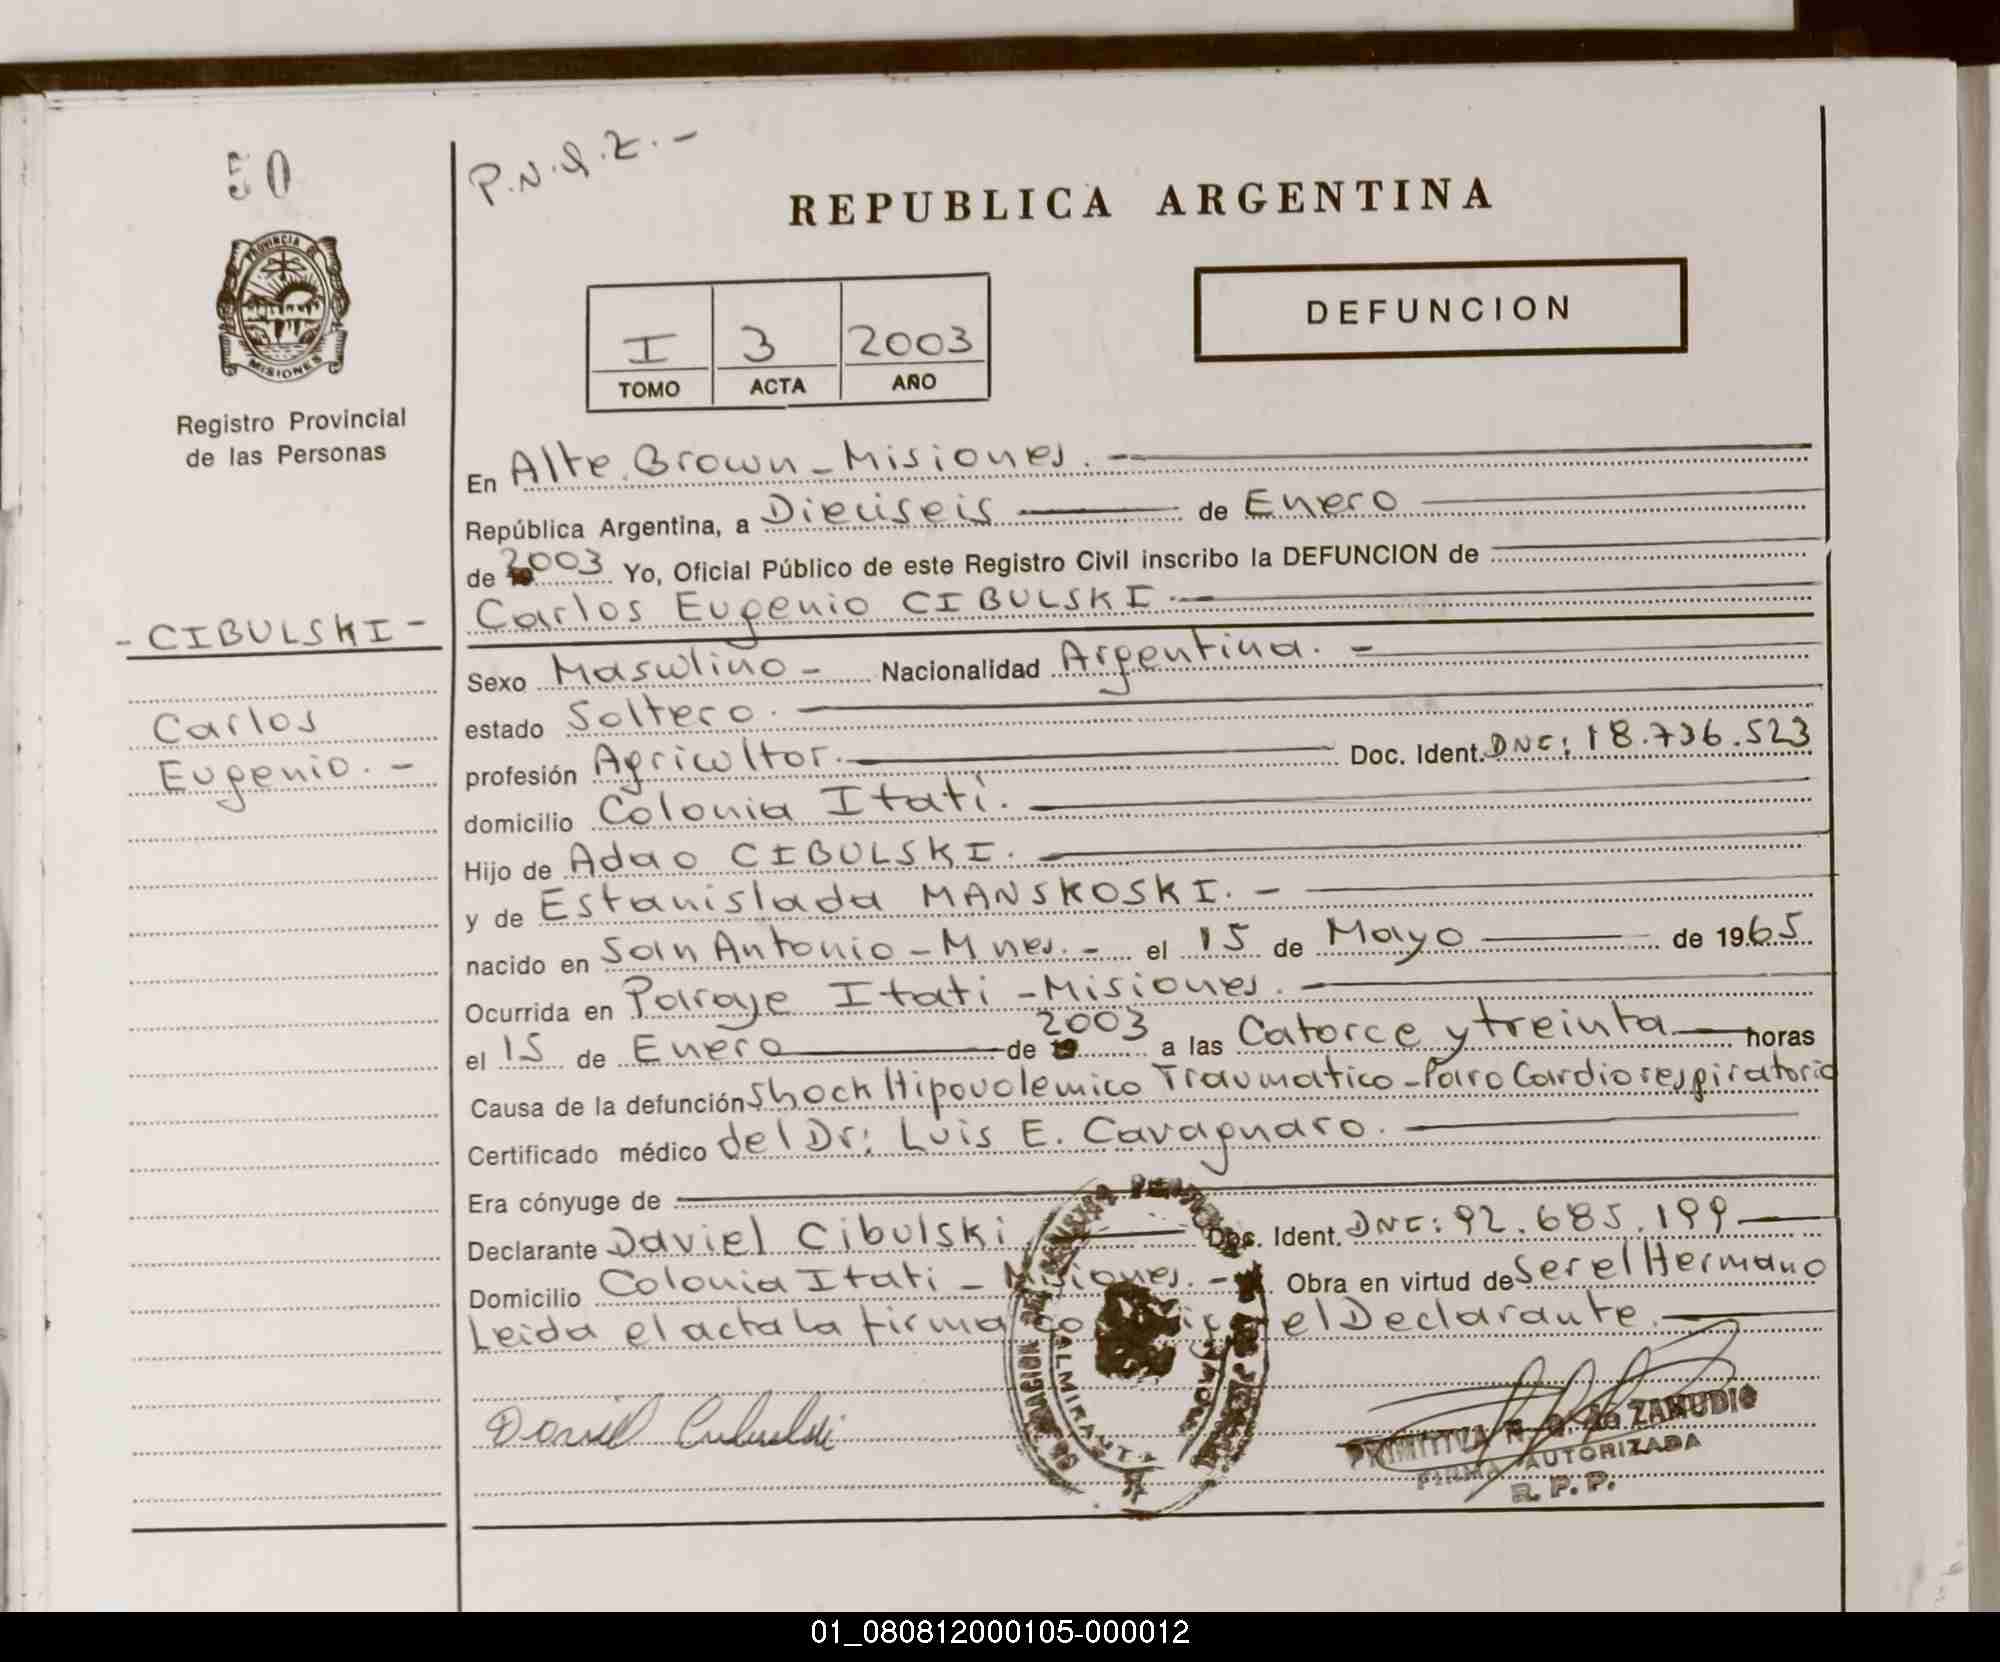 50
P.N.Q.Z.-
REPUBLICA ARGENTINA
PROVINCIA DE
MISIONES
I 3 2003
TOMO ACTA AÑO
DEFUNCION
Registro Provincial
de las Personas
En Alte. Brown - Misiones. -
República Argentina, a Dieciseis de Enero
de 2003 Yo, Oficial Público de este Registro Civil inscribo la DEFUNCION de
Carlos Eugenio CIBULSKI. -
- CIBULSKI -
Carlos
Eugenio. -
Sexo Masculino - Nacionalidad Argentina. -
estado Soltero. -
profesión Agricultor. Doc. Ident. DNI: 18.736.523
domicilio Colonia Itatí. -
Hijo de Adao CIBULSKI. -
y de Estanislada MANSKOSKI. -
nacido en San Antonio - Mnes. - el 15 de Mayo de 1965
Ocurrida en Paraje Itati - Misiones. -
el 15 de Enero de 2003 a las Catorce y treinta horas
Causa de la defunción Shock Hipovolemico Traumatico - Paro Cardiorespiratorio
Certificado médico del Dr: Luis E. Cavagnaro. -
Era cónyuge de
Declarante Daviel Cibulski Doc. Ident. DNI: 92.685.199
Domicilio Colonia Itati - Misiones. - Obra en virtud de Ser el Hermano
Leida el acta la firma conmigo el Declarante. -
ALMIRANTE BROWN
PRIMITIVA N. Q. de ZANUDIO
FIRMA AUTORIZADA
R. P. P.
01_080812000105-000012